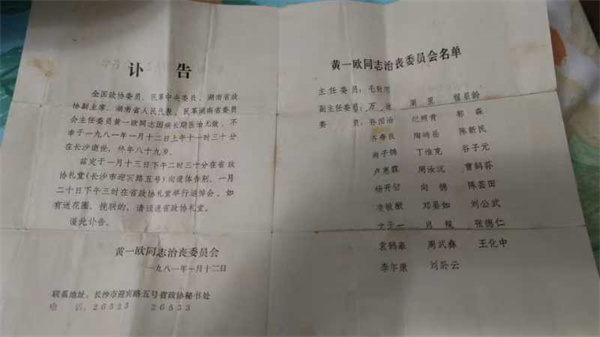 讣 告
全国政协委员、民革中央委员、湖南省政
协副主席、湖南省人民代表、民革湖南省委员
会主任委员黄一欧同志因病长期医治无效，不
幸于一九八一年一月十二日上午十一时三十分
在长沙逝世，终年八十九岁。
兹定于一月十三日下午二时三十分在省政
协礼堂(长沙市迎宾路五号)向遗体告别，一月
二十日下午三时在省政协礼堂举行追悼会，如
有送花圈、挽联的，请径送省政协礼堂。
谨此讣告。
黄一欧同志治丧委员会
一九八一年一月十二日
联系地址，长沙市迎宾路五号省政协秘书处
电 话，26523 26533
黄一欧同志治丧委员会名单
主任委员
副主任委员 程星龄
委 员 谷国治 郭森
陶峙岳 陈新民
尚子锦 丁维克 谷子元
周汝沆 曹痴荪
杨开 向德 陈芸田
凌敏猷 邓晏如 刘公武
文于一 肖 张德仁
袁鹤皋 周武彝 王化中
李尔康 刘卧云